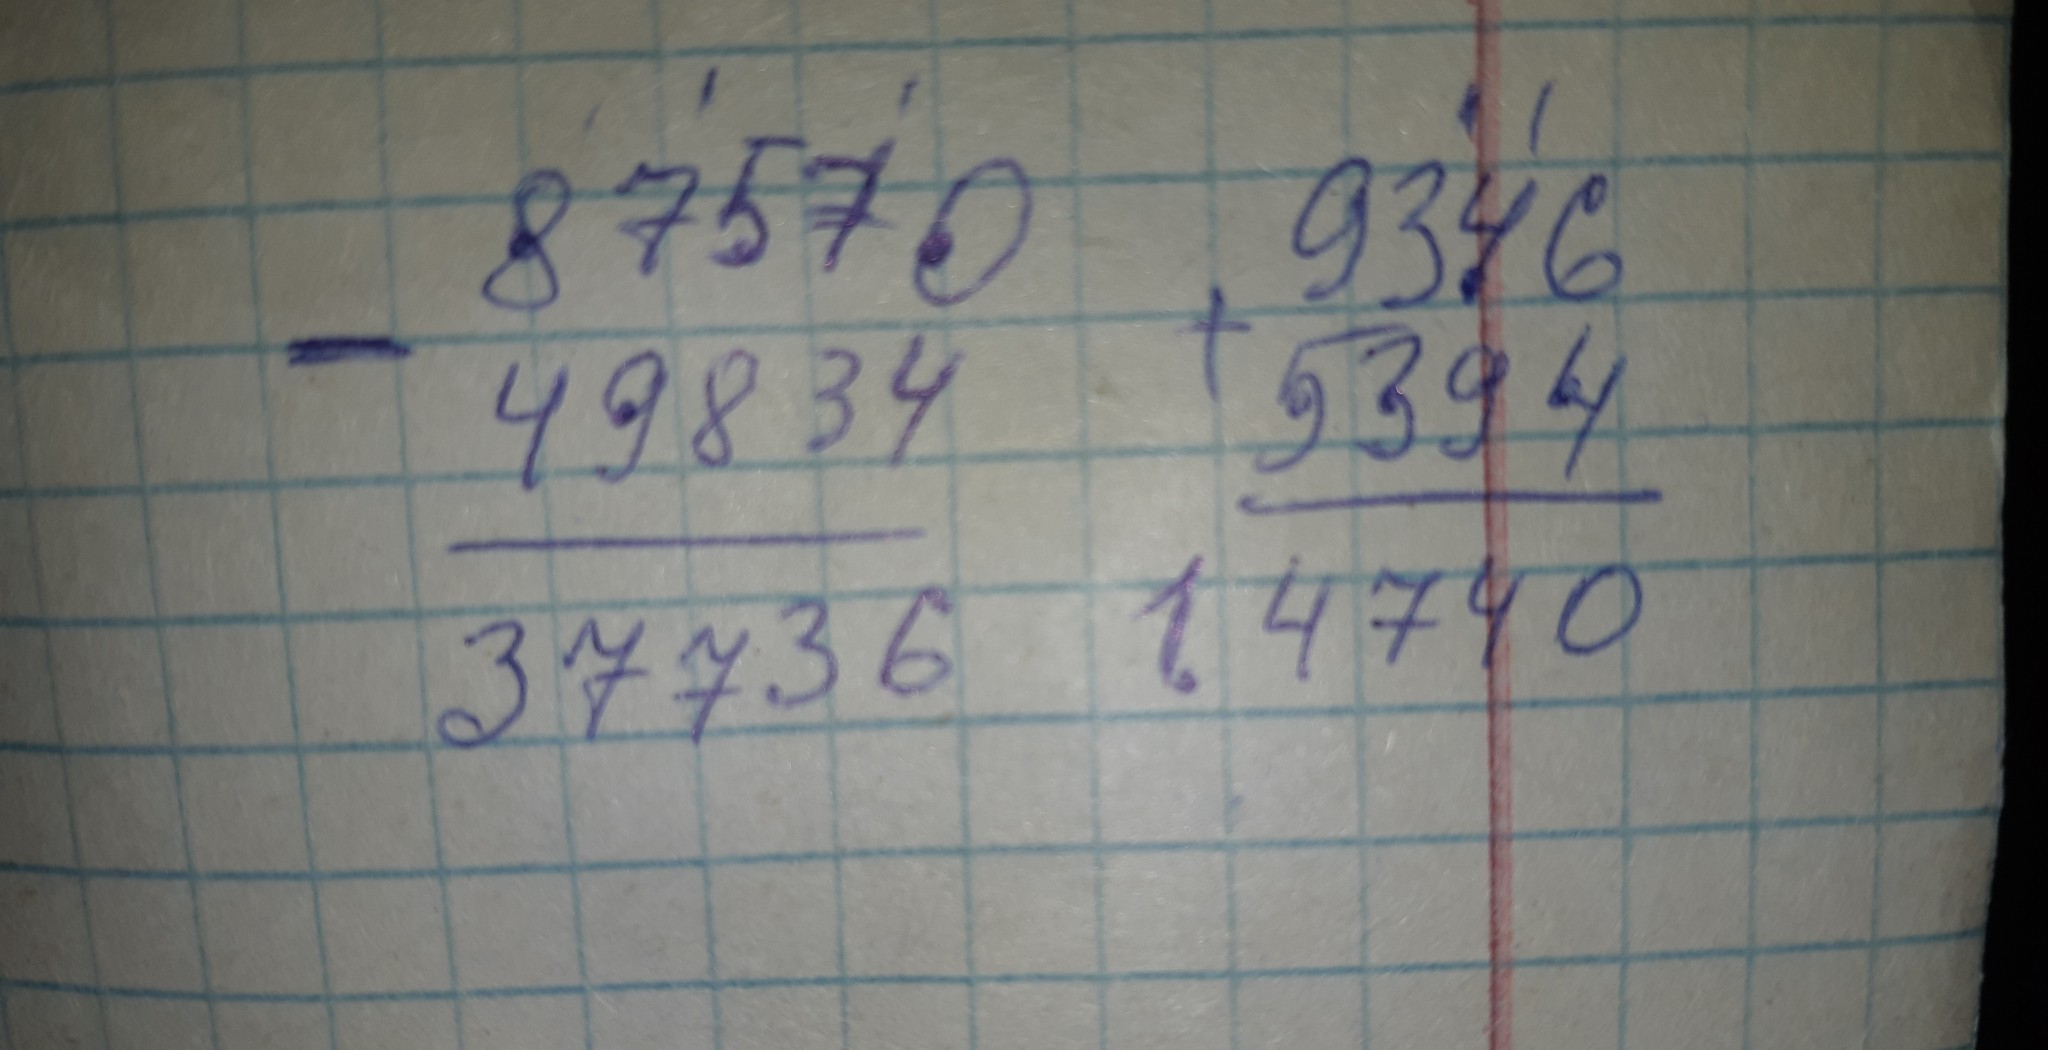 87570
− 49834
37736
9346
+ 5394
14740